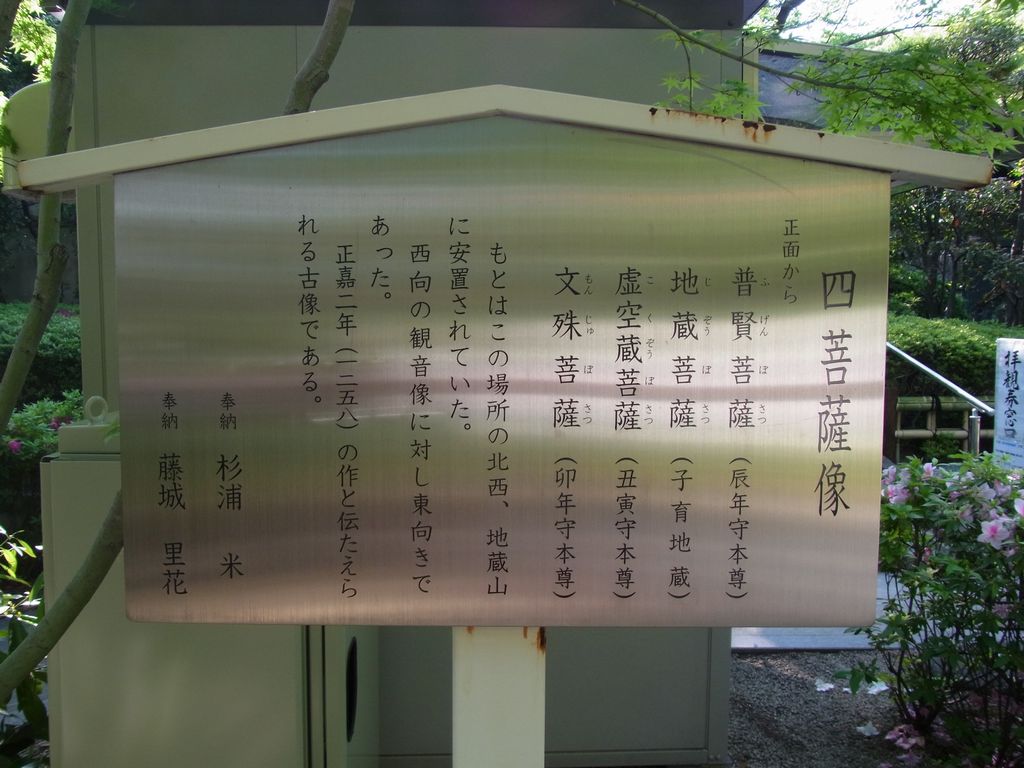 四菩薩像
正面から
普賢菩薩（辰年守本尊）
ふげんぼさつ
地蔵菩薩（子育地蔵）
じぞうぼさつ
虚空蔵菩薩（丑寅守本尊）
こくぞうぼさつ
文殊菩薩（卯年守本尊）
もんじゅぼさつ
もとはこの場所の北西、地蔵山
に安置されていた。
西向の観音像に対し東向きで
あった。
正嘉二年（一二五八）の作と伝たえら
れる古像である。
奉納 杉浦 米
奉納 藤城 里花
拝観奉窓口